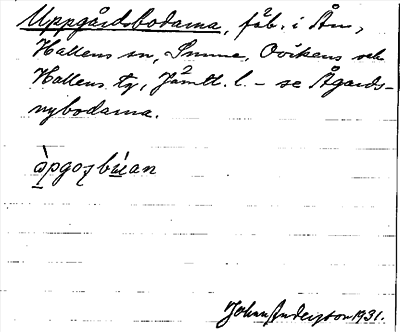 Uppgårdsbodarna, fäb. i Ån,
Hallens sn, Sunne, Ovikens och
Hallens tg, Jämtl. l. – se Ågards-
nybodarna.
Johan Anderson 1931.